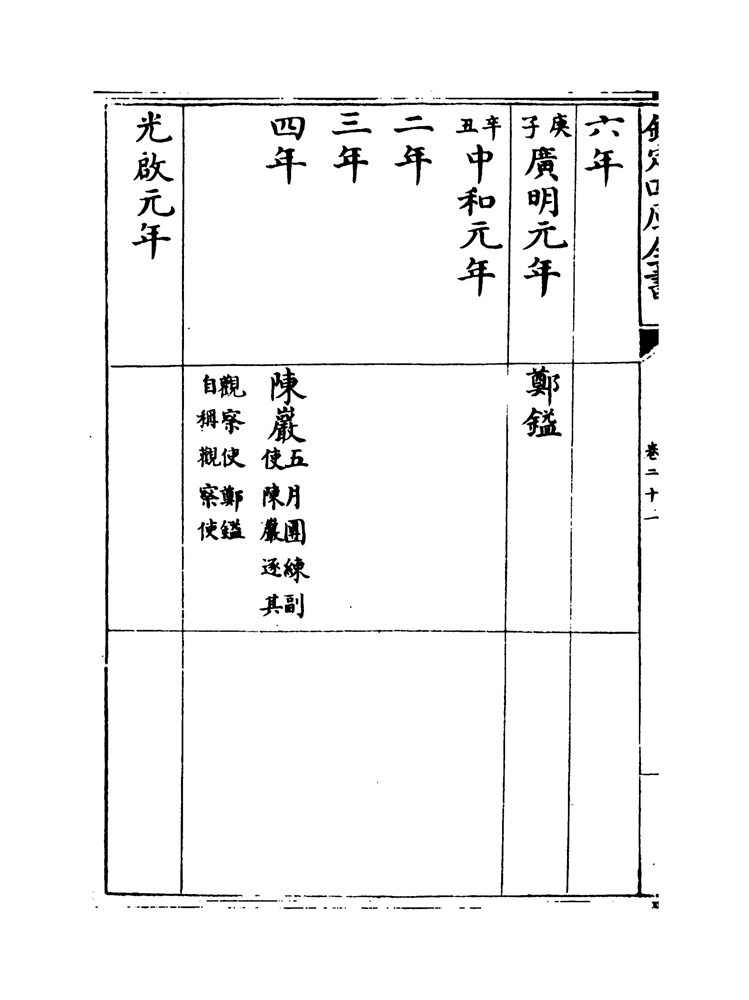 欽定四庫全書
卷二十一
六年
庚子廣明元年
鄭鎰
辛丑中和元年
二年
三年
四年
陳巖五月團練副使陳巖逐其
觀察使鄭鎰自稱觀察使
光啟元年